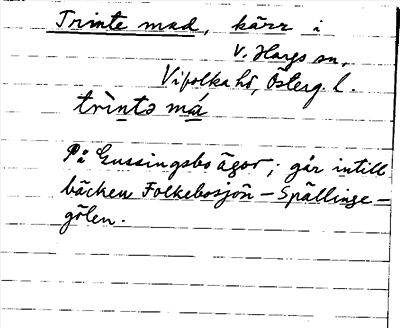 Trinte mad, kärr i
V. Hargs sn,
Vifolka hd, Österg. l.
trìntə má
På Gussingsbo ägor; går intill
bäcken Folkebosjön – Spällinge –
gölen.